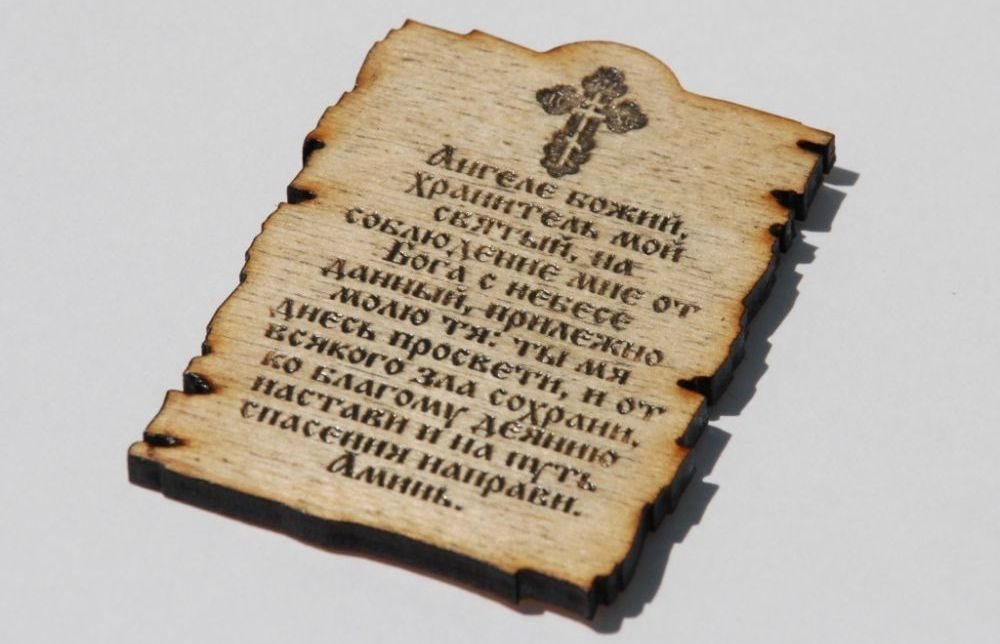 Ангеле божий,
хранитель мой
святый, на
соблюдение мне от
Бога с небесе
данный, прилежно
молю тя: ты мя
днесь просвети, и от
всякого зла сохрани,
ко благому деянию
настави и на путь
спасения направи.
Аминь.